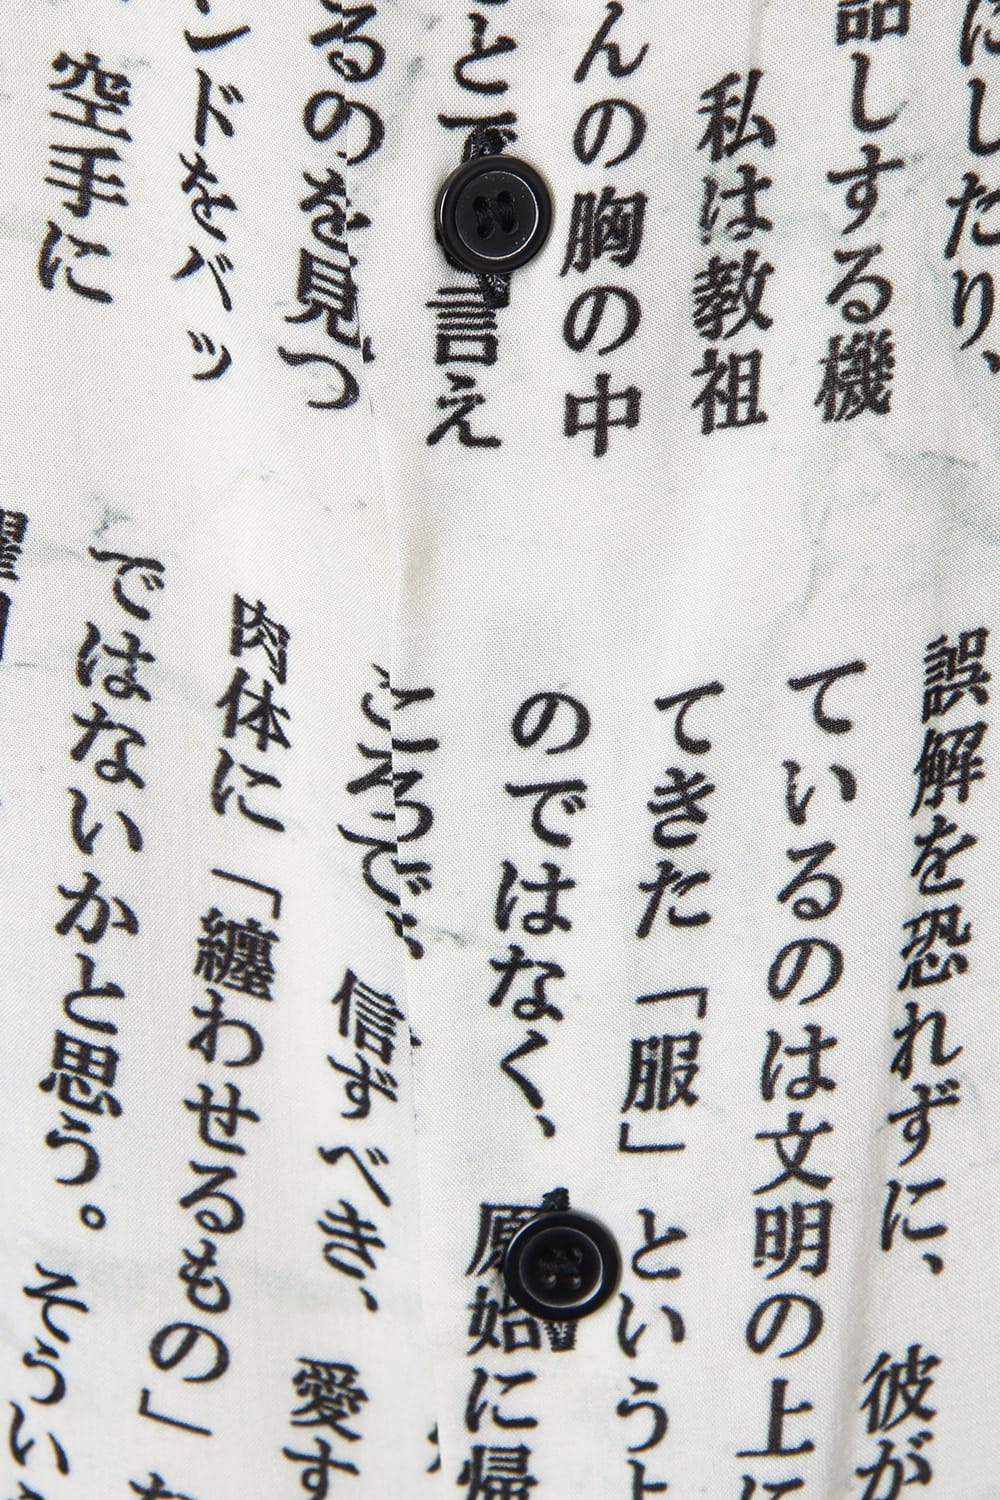 にしたり、
話しする機
私は教祖
んの胸の中
と
言え
るのを見つ
ンドをバッ
空手に
誤解を恐れずに、
彼が
ているのは文明の上に
てきた「服」というよ
のではなく、
原始に帰
ころで、
信ずべき、
愛す
肉体に「纏わせるもの」な
ではないかと思う。そうい